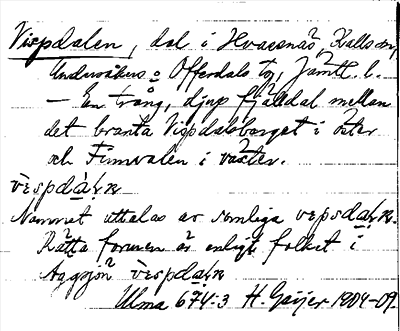 Vispdalen, dal i Hvaesnäs, Kallsdn,
Undersåkers o Offerdals tg, Jämtl. l.
— En trång, djup fjälldal mellan
det branta Vispdalsberget i öster
och Finnvalen i väster.
vèspdàḷn
Namnet uttalas av somliga vepsdàḷn.
Rätta formen är enligt folket i
Aggsjön vèspdàḷn
Ulma 674:3 H. Geijer 1904-09.